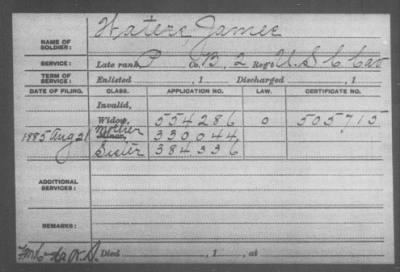 NAME OF SOLDIER: Waters, James
SERVICE: Late rank P Co. B, 2 Reg't U.S.C Cav
TERM OF SERVICE: Enlisted , 1 Discharged , 1
DATE OF FILING. CLASS. APPLICATION NO. LAW. CERTIFICATE NO.
Invalid,
Widow, 554286 0 505715
1885 Aug 21 Mother Minor, 330,044
Sister 384.336
ADDITIONAL SERVICES:
REMARKS:
Died , 1 , at